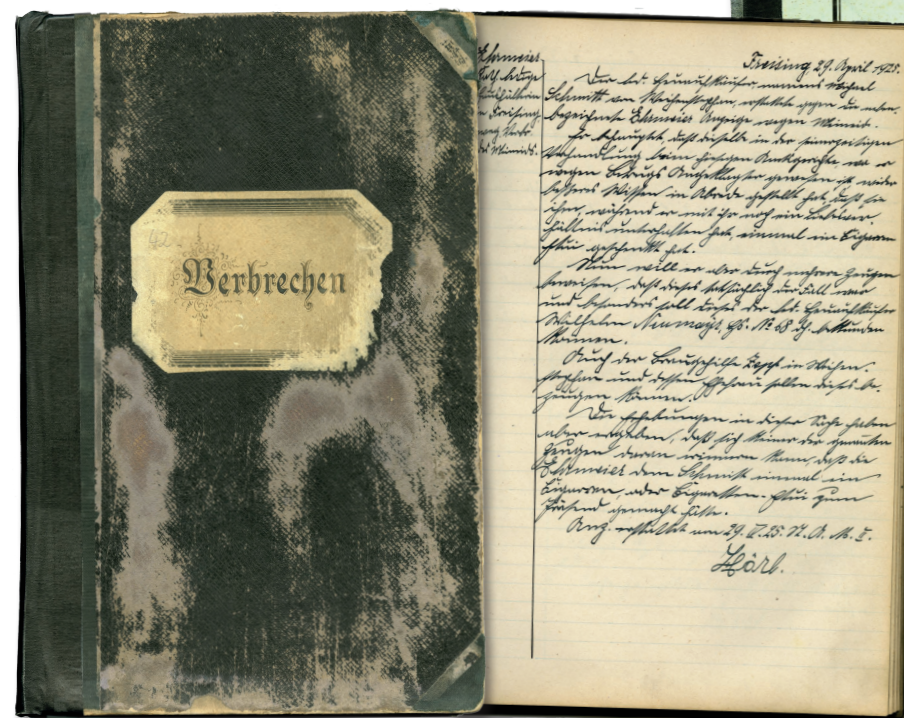 42.
Verbrechen
Ehrmeier
Kath. ledige
Freising
weg. Verbr.
des Meineids.
Freising 29. April 1925.
Der led. Heuaufkäufer, namens Michael
Schmitt von Weihenstephan, erstattete gegen die neben-
bezeichnete Ehrmeier Anzeige wegen Meineid.
Er behauptet, daß dieselbe in der seinerzeitigen
Verhandlung beim hiesigen Amtsgerichte wo er
wegen Betrugs Angeklagter gewesen ist, wider
besseres Wissen in Abrede gestellt hat, daß sie
ihm, während er mit ihr noch ein Liebesver-
hältnis unterhalten hat, einmal ein Cigarren
Etui geschenkt hat.
Nun will er aber durch mehrere Zeugen
beweisen, daß dieses tatsächlich der Fall war
und besonders soll dieses der led. Heuaufkäufer
Wilhelm Hs. № 58 bekunden
können.
Auch der Braugehilfe Kopf in Weihen-
stephan und dessen Ehefrau sollen dieses be-
zeugen können.
Die Erhebungen in dieser Sache haben
aber ergeben, daß sich keiner der genannten
Zeugen daran erinnern kann, daß die
Ehrmeier dem Schmitt einmal ein
Cigarren, oder Cigaretten-Etui zum
Präsent gemacht hatte.
Anz. erstattet am 29. IV. 25. St. A. M. II.
Hörl.